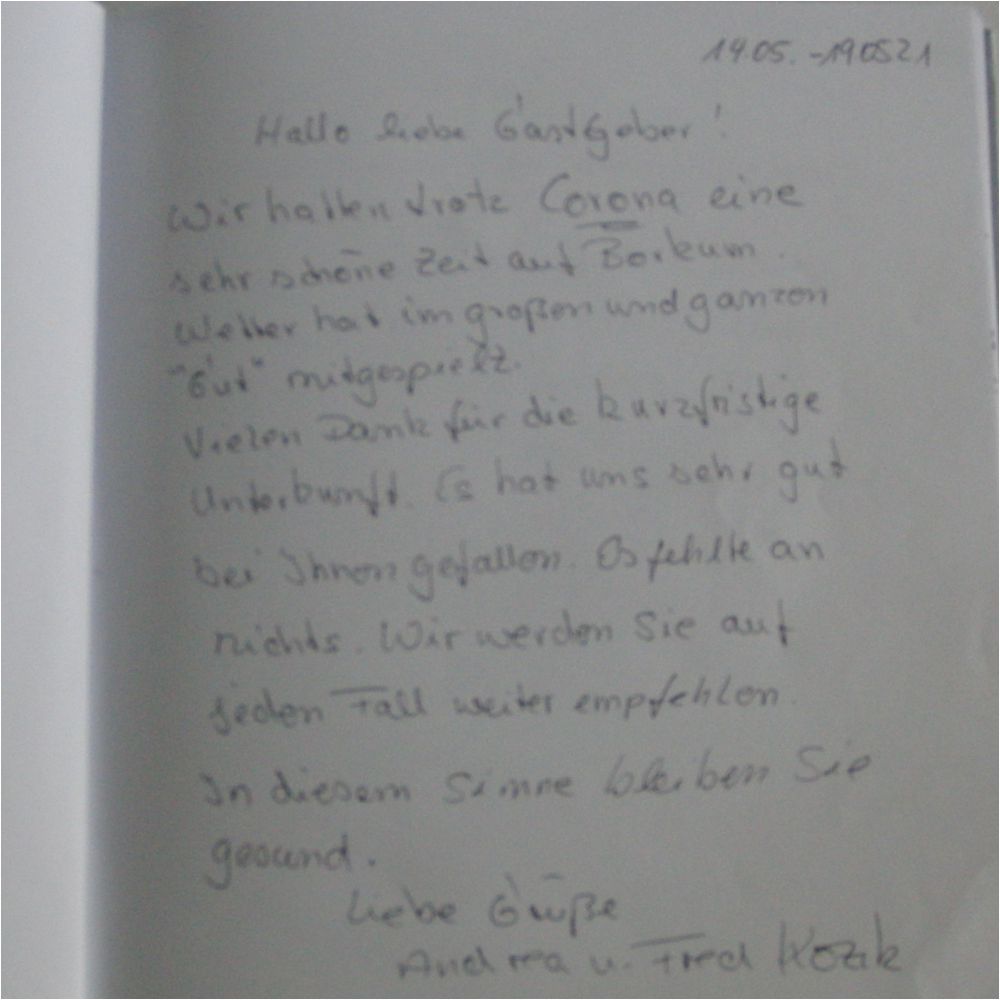 14.05. - 190521
Hallo liebe Gastgeber!
Wir hatten trotz Corona eine
sehr schöne Zeit auf Borkum.
Wetter hat im großen und ganzen
"Gut" mitgespielt.
Vielen Dank für die kurzfristige
Unterkunft. Es hat uns sehr gut
bei Ihnen gefallen. Es fehlte an
nichts. Wir werden Sie auf
jeden Fall weiter empfehlen.
In diesem Sinne bleiben Sie
gesund.
Liebe Grüße
Andrea u. Fred Kozik